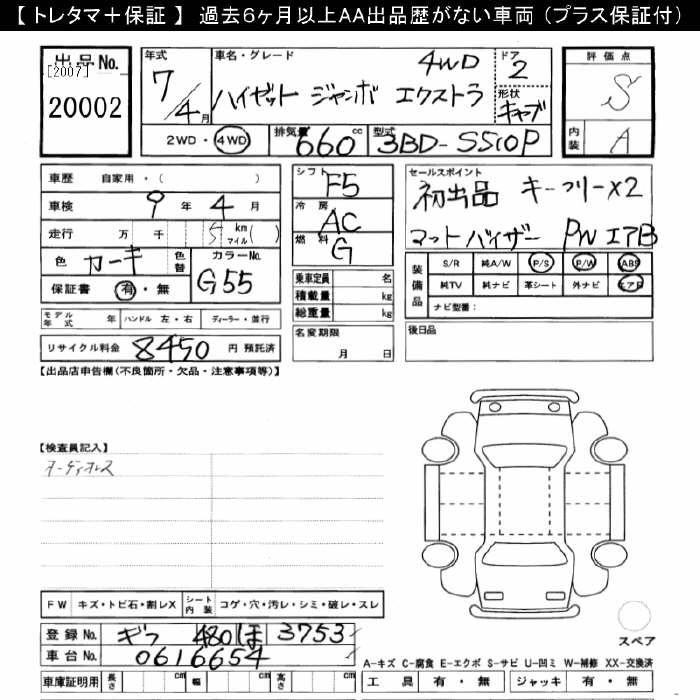 【トレタマ＋保証】 過去6ヶ月以上AA出品歴がない車両（プラス保証付）
出品No.
[2007]
20002
年式
7/4月
車名・グレード
4WD
ハイゼット ジャンボ エクストラ
ドア
2
形状
キャブ
2WD・4WD
排気量
660cc
型式
3BD-S510P
評価点
S
内装
A
車歴 自家用・( )
車検 9年 4月
走行 万 千 5 km マイル( )
色 カーキ 色替
カラーNo.
G55
保証書 有・無
モデル年式 年 ハンドル 左・右 ディーラー・並行
リサイクル料金 8450 円 預託済
シフト
F5
冷房
AC
燃料
G
乗車定員 名
積載量 kg
総重量 kg
名変期限
月 日
セールスポイント
初出品 キーフリー×2
マットバイザー PW エアB
装備品
S/R 純A/W P/S P/W ABS
純TV 純ナビ 革シート 外ナビ エアB
ナビ型番：
後日品
【出品店申告欄(不良箇所・欠品・注意事項等)】
【検査員記入】
オーディオレス
FW キズ・トビ石・割レX シート内装 コゲ・穴・汚レ・シミ・破レ・スレ
登録No. ギフ 480 ほ 3753
車台No. 0616654
車庫証明用 長さ cm 幅 cm 高さ cm
スペア
A-キズ C-腐食 E-エクボ S-サビ U-凹ミ W-補修 XX-交換済
工具 有・無 ジャッキ 有・無